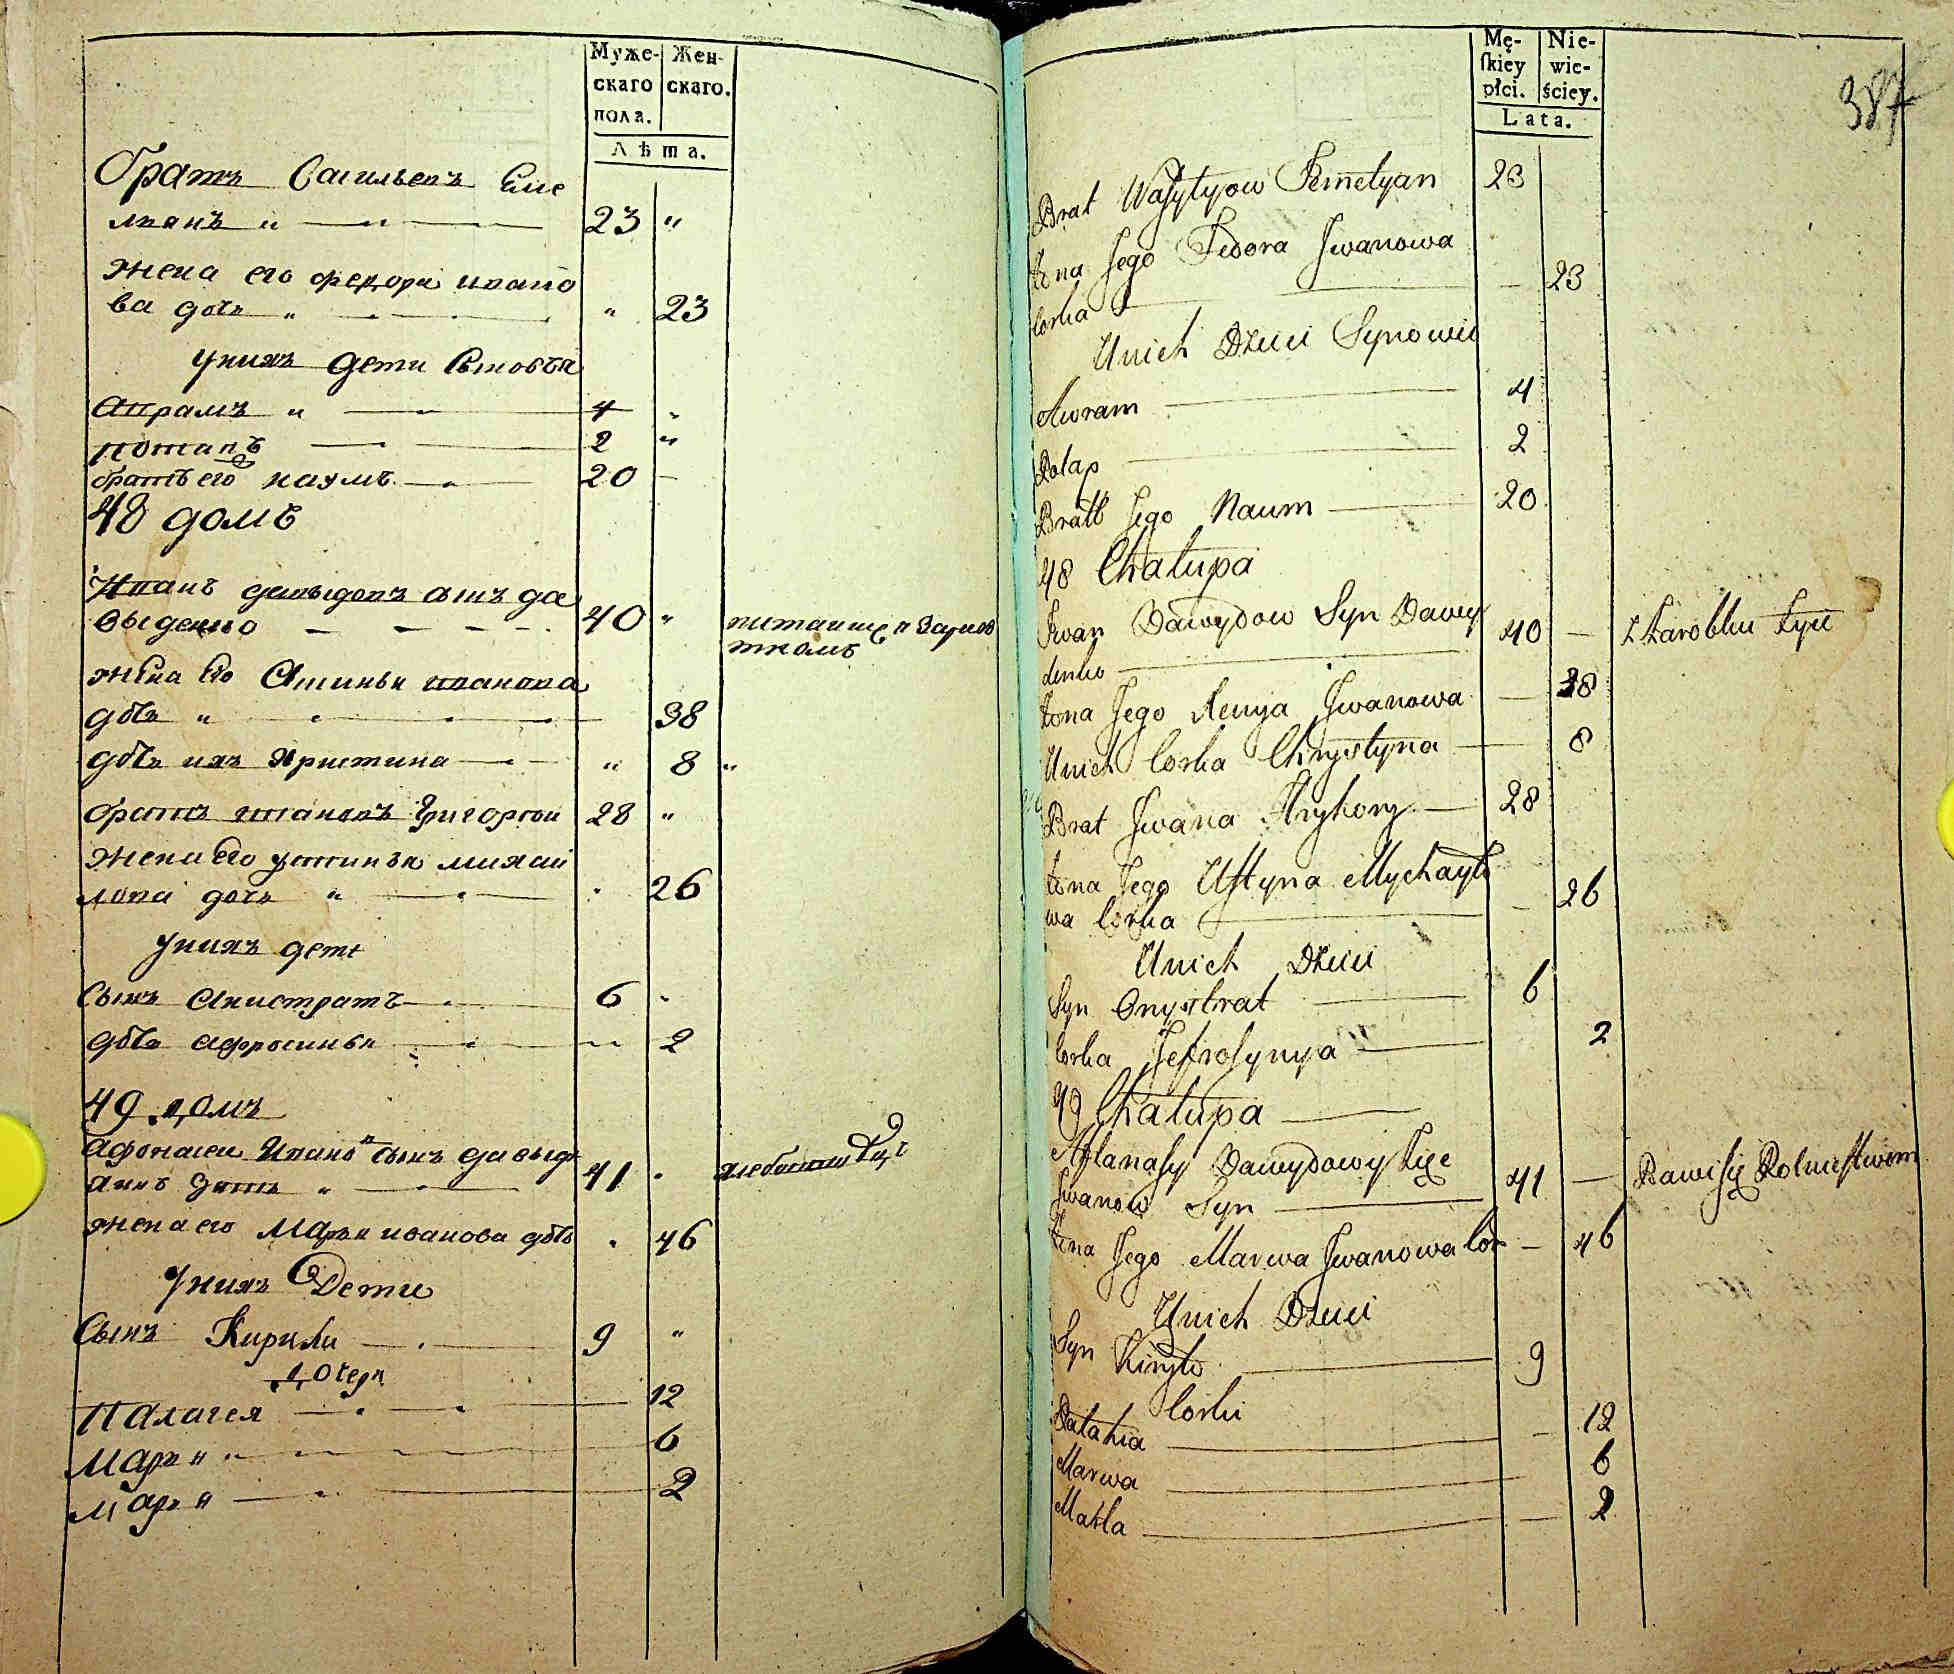 Муже-
скаго
пола.
Жен-
скаго.
Лѣта.
братъ Васильевъ Еме
льянъ 23
жена его федора ивано
ва дочь 23
у нихъ дети Сыновья
Аврамъ 4
потапъ 2
братъ его наумъ 20
48 домъ
Иванъ давыдовъ сынъ да
выденко 40 питаится Зарабо
ткомъ
жена Его Аксинья иванова
дочь 38
дочь ихъ Христина 8
братъ ивановъ Григорей 28
жена Его устинья михай
лова дочь 26
у нихъ дети
Сынъ Анистратъ 6
дочь афросинья 2
49 домъ
Афонасей Ивановъ сынъ давыд
41
жена его Марья иванова дочь 46
у нихъ Дети
Сынъ Кирила 9
дочери
Палагея 12
Марья 6
Марья 2
387
Mę-
skiey
płci.
Nie-
wie-
ściey.
Lata.
Brat Wasylyow Jemelyan 23
żona Jego Fedora Jwanowa
Corka 23
Unich Dzieci Synowie
Awram 4
Potap 2
Bratt Jego Naum 20
48 Chałupa
Jwan Dawydow Syn Dawy
denko 40 z Zarobku żyie
żona Jego Xenya Jwanowa 38
Unich Corka Chrystyna 8
Brat Jwana Hryhory 28
żona Jego Ustyna Mychayło
wa Corka 26
Unich Dzieci
Syn Onystrat 6
Corka Jefrosynya 2
49 Chałupa
Aftanasy Dawydowy
Jwanow Syn 41 Bawi się Rolnictwem
żona Jego Marwa Jwanowa Cor 46
Unich Dzieci
Syn Kiryło 9
Corki
Pałahia 12
Marwa 6
Makla 2